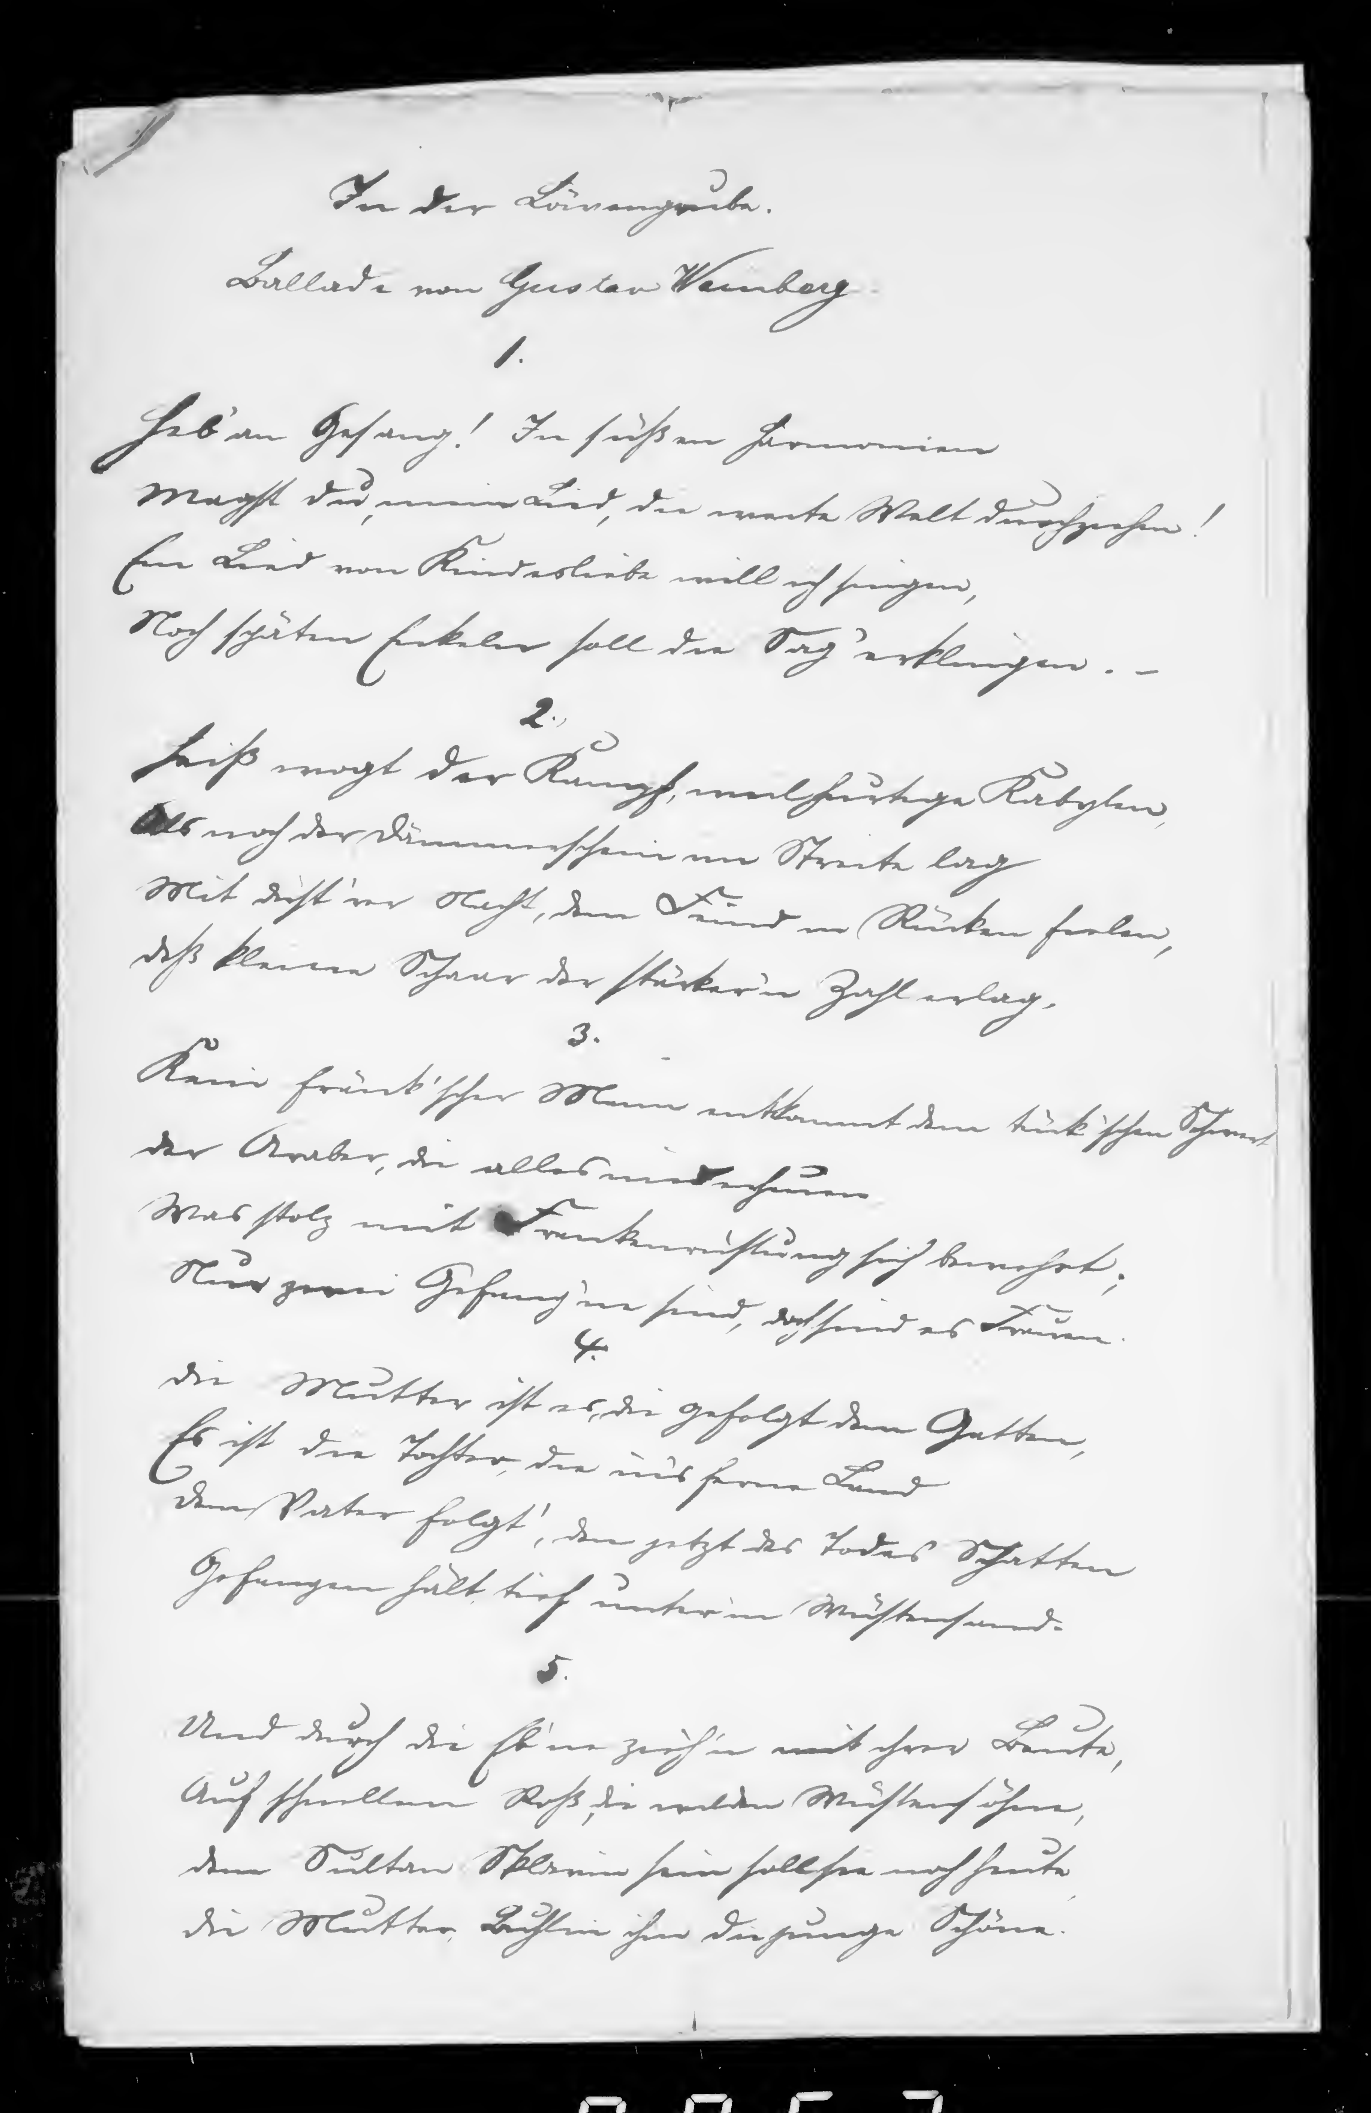 In der Löwengrube.
Ballade von Gustav Weinberg
1.
Heb' an Gesang! In süßen Harmonien
Magst du, mein Lied, die weite Welt durchziehen!
Ein Lied von Kindesliebe will ich singen,
Noch späten Enkeln soll die Sag' erklingen. –
2.
Heiß wogt der Kampf, weil hurtige Kabylen,
Als noch der Dämmerschein im Streite lag
Mit dicht'rer Nacht, dem Feind in Rücken fielen,
daß kleine Schaar der stärker'n Zahl erlag.
3.
Kein fränk'scher Mann entkommt dem tück'schen Schwert
der Araber, die alles niederhauen
Was stolz mit Frankenrüstung sich bewehrt;
Nur zwei Gefang'ne sind, doch sind es Frauen.
4.
die Mutter ist es, die gefolgt dem Gatten,
Es ist die Tochter, die in's ferne Land
dem Vater folgt', den jetzt des Todes Schatten
Gefangen hält tief unter'm Wüstensand.
5.
Und durch die Eb'ne zieh'n mit ihrer Beute,
Auf schnellem Roß, die wilden Wüstensöhne,
dem Sultan Sklavin sein soll sie noch heute
die Mutter, Buhlin ihm die junge Schöne.